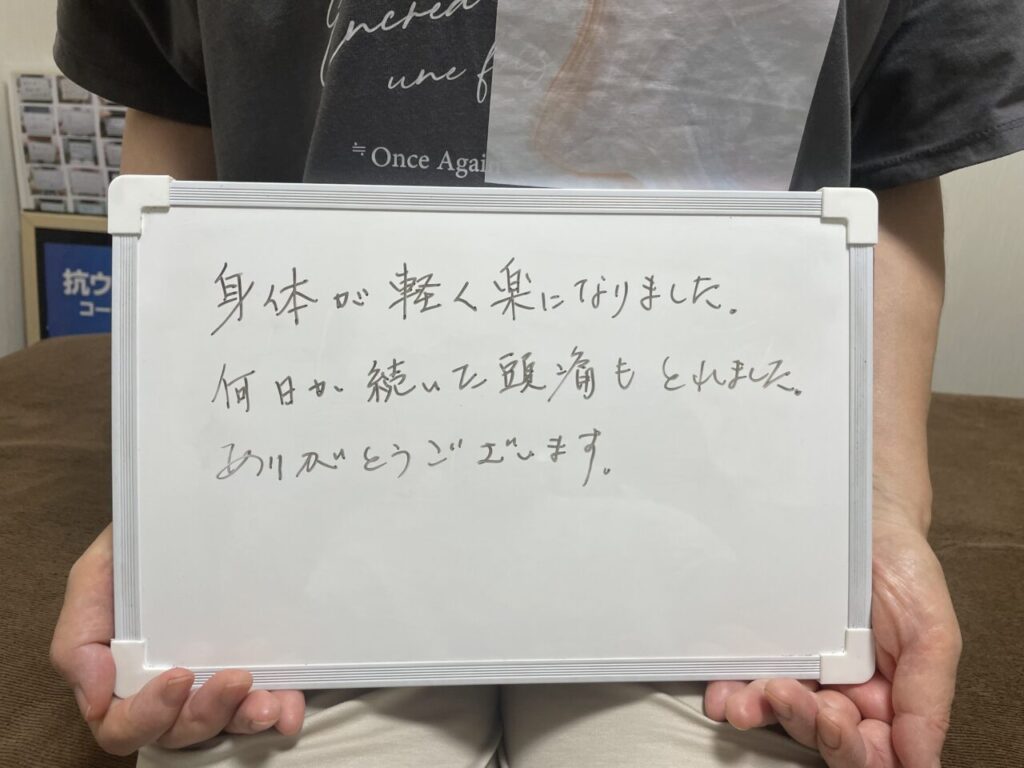 une f
≒ Once Again
身体が軽く楽になりました。
何日か続いた頭痛もとれました。
ありがとうございます。
抗ウ
コー